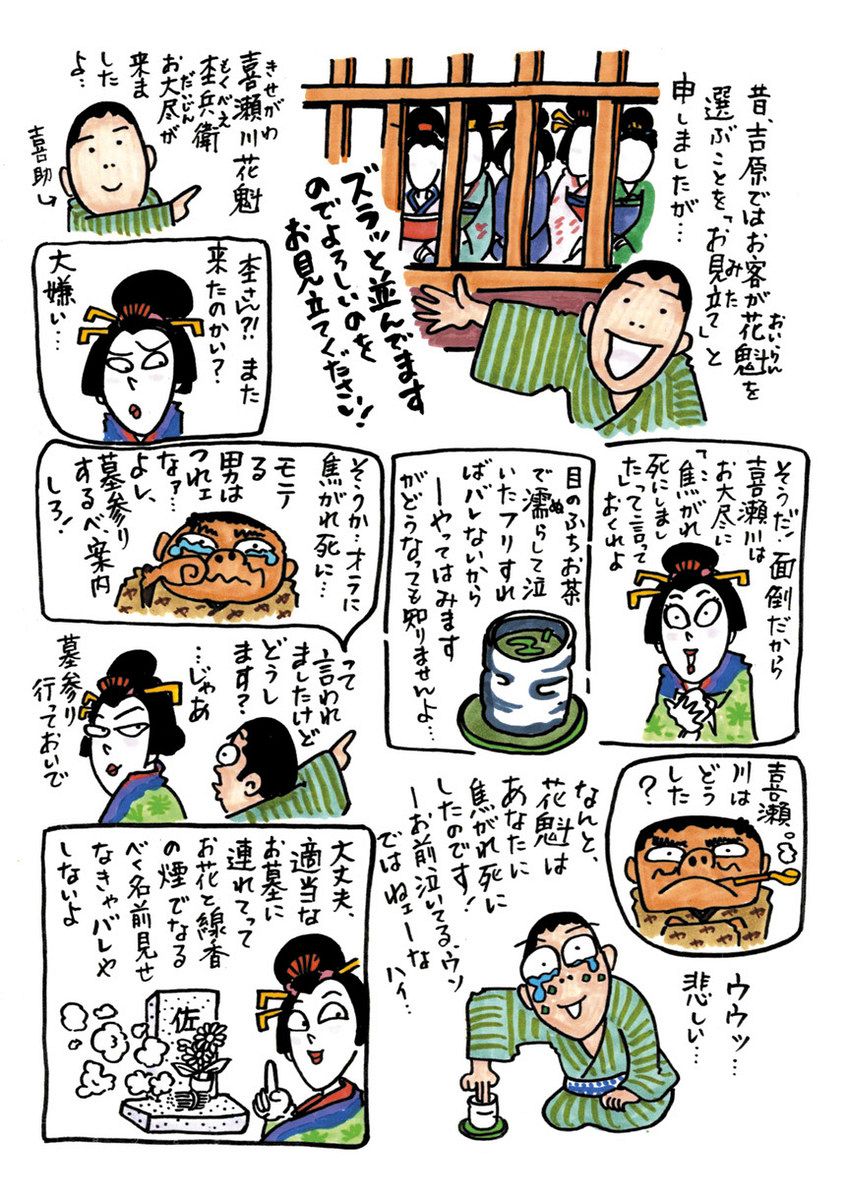 昔、吉原ではお客が花魁を
おいらん
選ぶことを「お見立て」と
みた
申しましたが…
ズラッと並んでます
のでよろしいのを
お見立てください!
喜瀬川花魁
きせがわ
杢兵衛
もくべえ
お大尽が
だいじん
来ま
した
よ…
喜助
杢さん?!また
来たのかい?
大嫌い…
そうだ!面倒だから
喜瀬川は
お大尽に
「…焦がれ
死にしまし
た」って言って
おくれよ
目のふちお茶
で濡らして泣
ぬ
いたフリすれ
ばバレないから
ーやってはみます
がどうなっても知りませんよ…
喜瀬
川は
どう
した
?
ウウッ…
悲しい…
なんと、
花魁は
あなたに
焦がれ死に
したのです!
ーお前、泣いてる、ウソ
ではねェーな
ハイ…
そうか…オラに
焦がれ死に…
モテ
る
男は
つれェ
なァ…
よし、
墓参り
するべ案内
しろ!
って
言われ
ましたけど
どうし
ます?
…じゃあ
墓参り
行っておいで
大丈夫、
適当な
お墓に
連れてって
お花と線香
の煙でなる
べく名前見せ
なきゃバレや
しないよ
佐